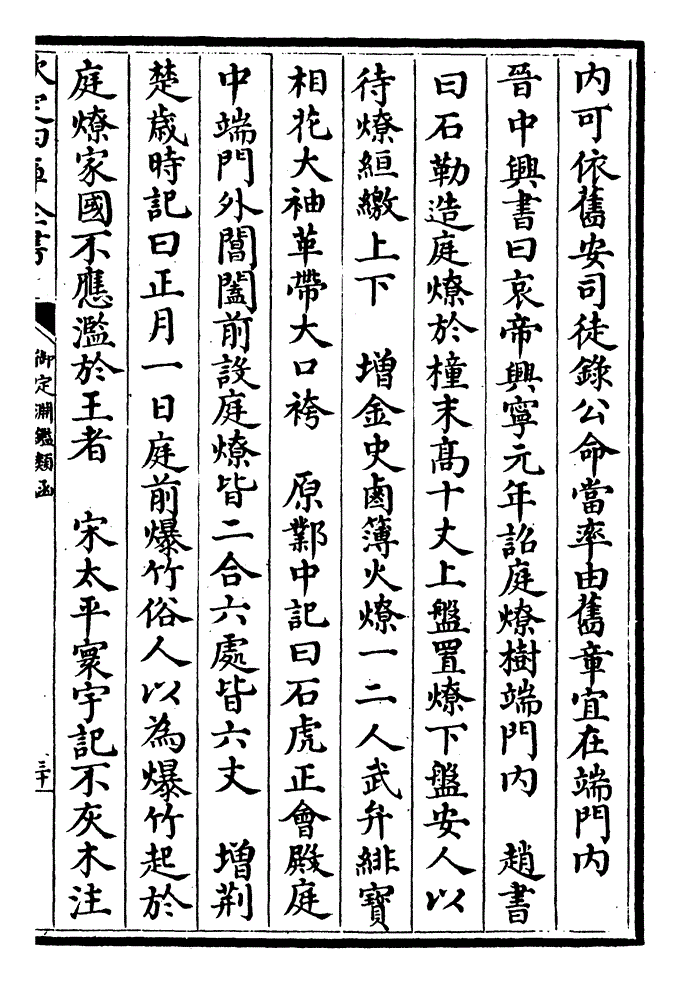 内可依舊安司徒錄公命當率由舊章宜在端門内
晉中興書曰哀帝興寧元年詔庭燎樹端門内　趙書
曰石勒造庭燎於橦末髙十丈上盤置燎下盤安人以
待燎絙繳上下　増金史鹵簿火燎一二人武弁緋寳
相花大袖革帶大口袴　原鄴中記曰石虎正會殿庭
中端門外閶闔前設庭燎皆二合六處皆六丈　増荆
楚歳時記曰正月一日庭前爆竹俗人以為爆竹起於
庭燎家國不應濫於王者　宋太平寰宇記不灰木注
欽定四庫全書
御定淵鑑類函
三十